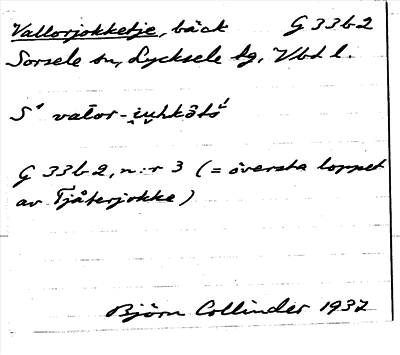 Vallorjokketje, bäck G 33b2
Sorsele sn, Lycksele tg, Vbt l.
G 33b2, n:r 3 (= översta loppet
av Tjåterjokke)
Björn Collinder 1937